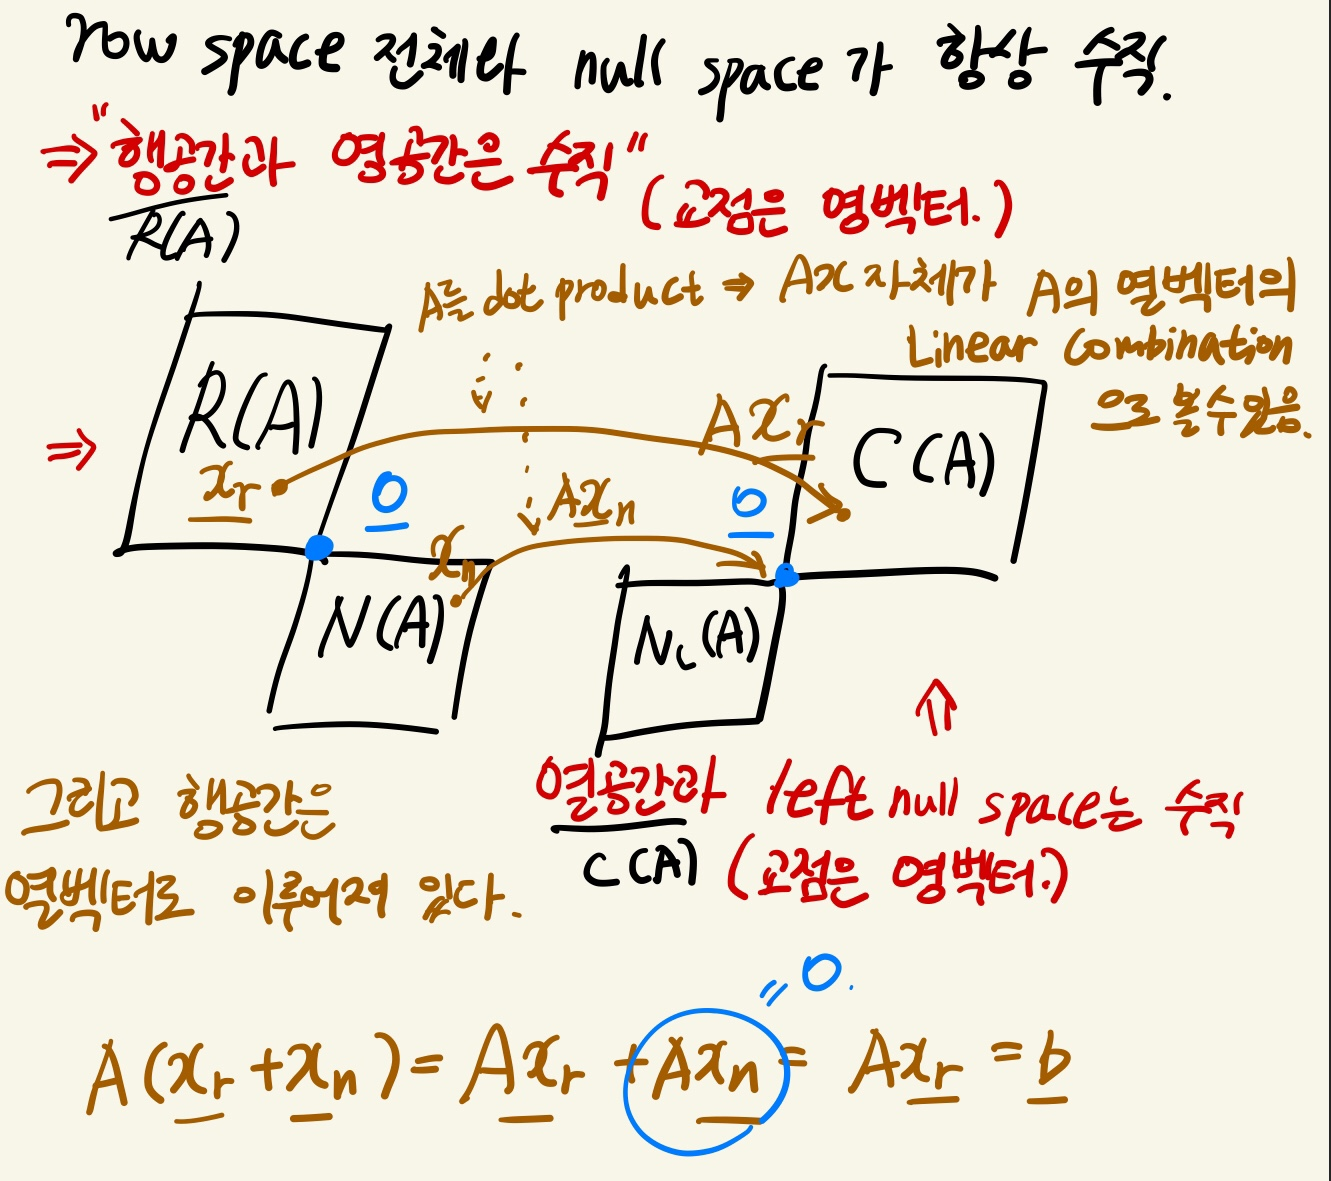 row space 전체와 null space가 항상 수직.
⇒ "행공간과 열공간은 수직" (교점은 영벡터.)
R(A)
A를 dot product ⇒ Ax 자체가 A의 열벡터의
Linear Combination
으로 볼 수 있음.
R(A)
⇒
x_r
0
Ax_r
C(A)
0
Ax_n
x_n
N(A)
N_L(A)
⇑
열공간과 left null space는 수직
C(A) (교점은 영벡터.)
그리고 행공간은
열벡터로 이루어져 있다.
= 0.
A(x_r + x_n) = Ax_r + Ax_n = Ax_r = b